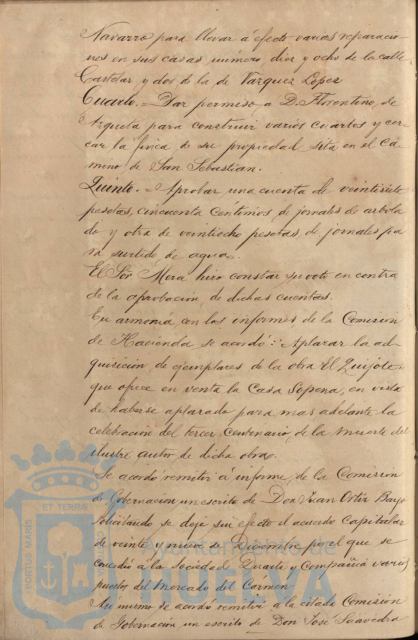 Navarro para llevar á efecto varias reparacio
nes en sus casas, número diez y ocho de la calle
Castelar y dos de la de Vazquez Lopez
Cuarto. = Dar permiso a D. Florentino, de
Azqueta para construir varios cuartos y cer
car la finca de su propiedad sita en el Ca
mino de San Sebastian.
Quinto. = Aprobar una cuenta de veintisiete
pesetas, cincuenta centimos de jornales de arbola
do y otra de veintiocho pesetas, de jornales pa
ra surtido de aguas.
El Sor Mora hizo constar su voto en contra
de la aprobacion, de dichas cuentas.
En armonia con los informes de la Comision
de Hacienda se acordó: Aplazar la ad-
quisicion de ejemplares de la obra El Quijote
que ofrece en venta la Casa Sopena, en vista
de haberse aplazado para mas adelante la
celebracion del tercer Centenario, de la muerte del
ilustre autor de dicha obra.
Se acordó remitir á informe, de la Comision
de Gobernacion un escrito de Don Juan Ortiz
solicitando se deje sin efecto el acuerdo Capitular
de veinte y nueve de Diciembre por el que se
concedió a la Sociedad Duarte y Compañia varios
puestos del Mercado del Carmen
Asi mismo se acordó remitir a la citada Comision
de Gobernacion un escrito de Don José Saavedra
PORTUS MARIS ET TERRAE CUSTODIA
Ayuntamiento de
HUELVA